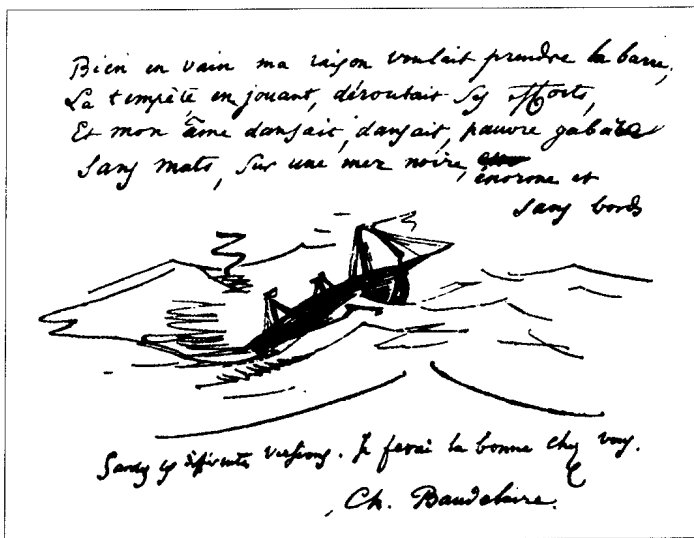 Bien en vain ma raison voulait prendre la barre,
La tempête en jouant, déroutait ses efforts,
Et mon âme dansait, dansait, pauvre gabare
Sans mats, sur une mer noire, énorme et
sans bords
différentes versions. Je ferai la bonne chez vous.
Ch. Baudelaire.